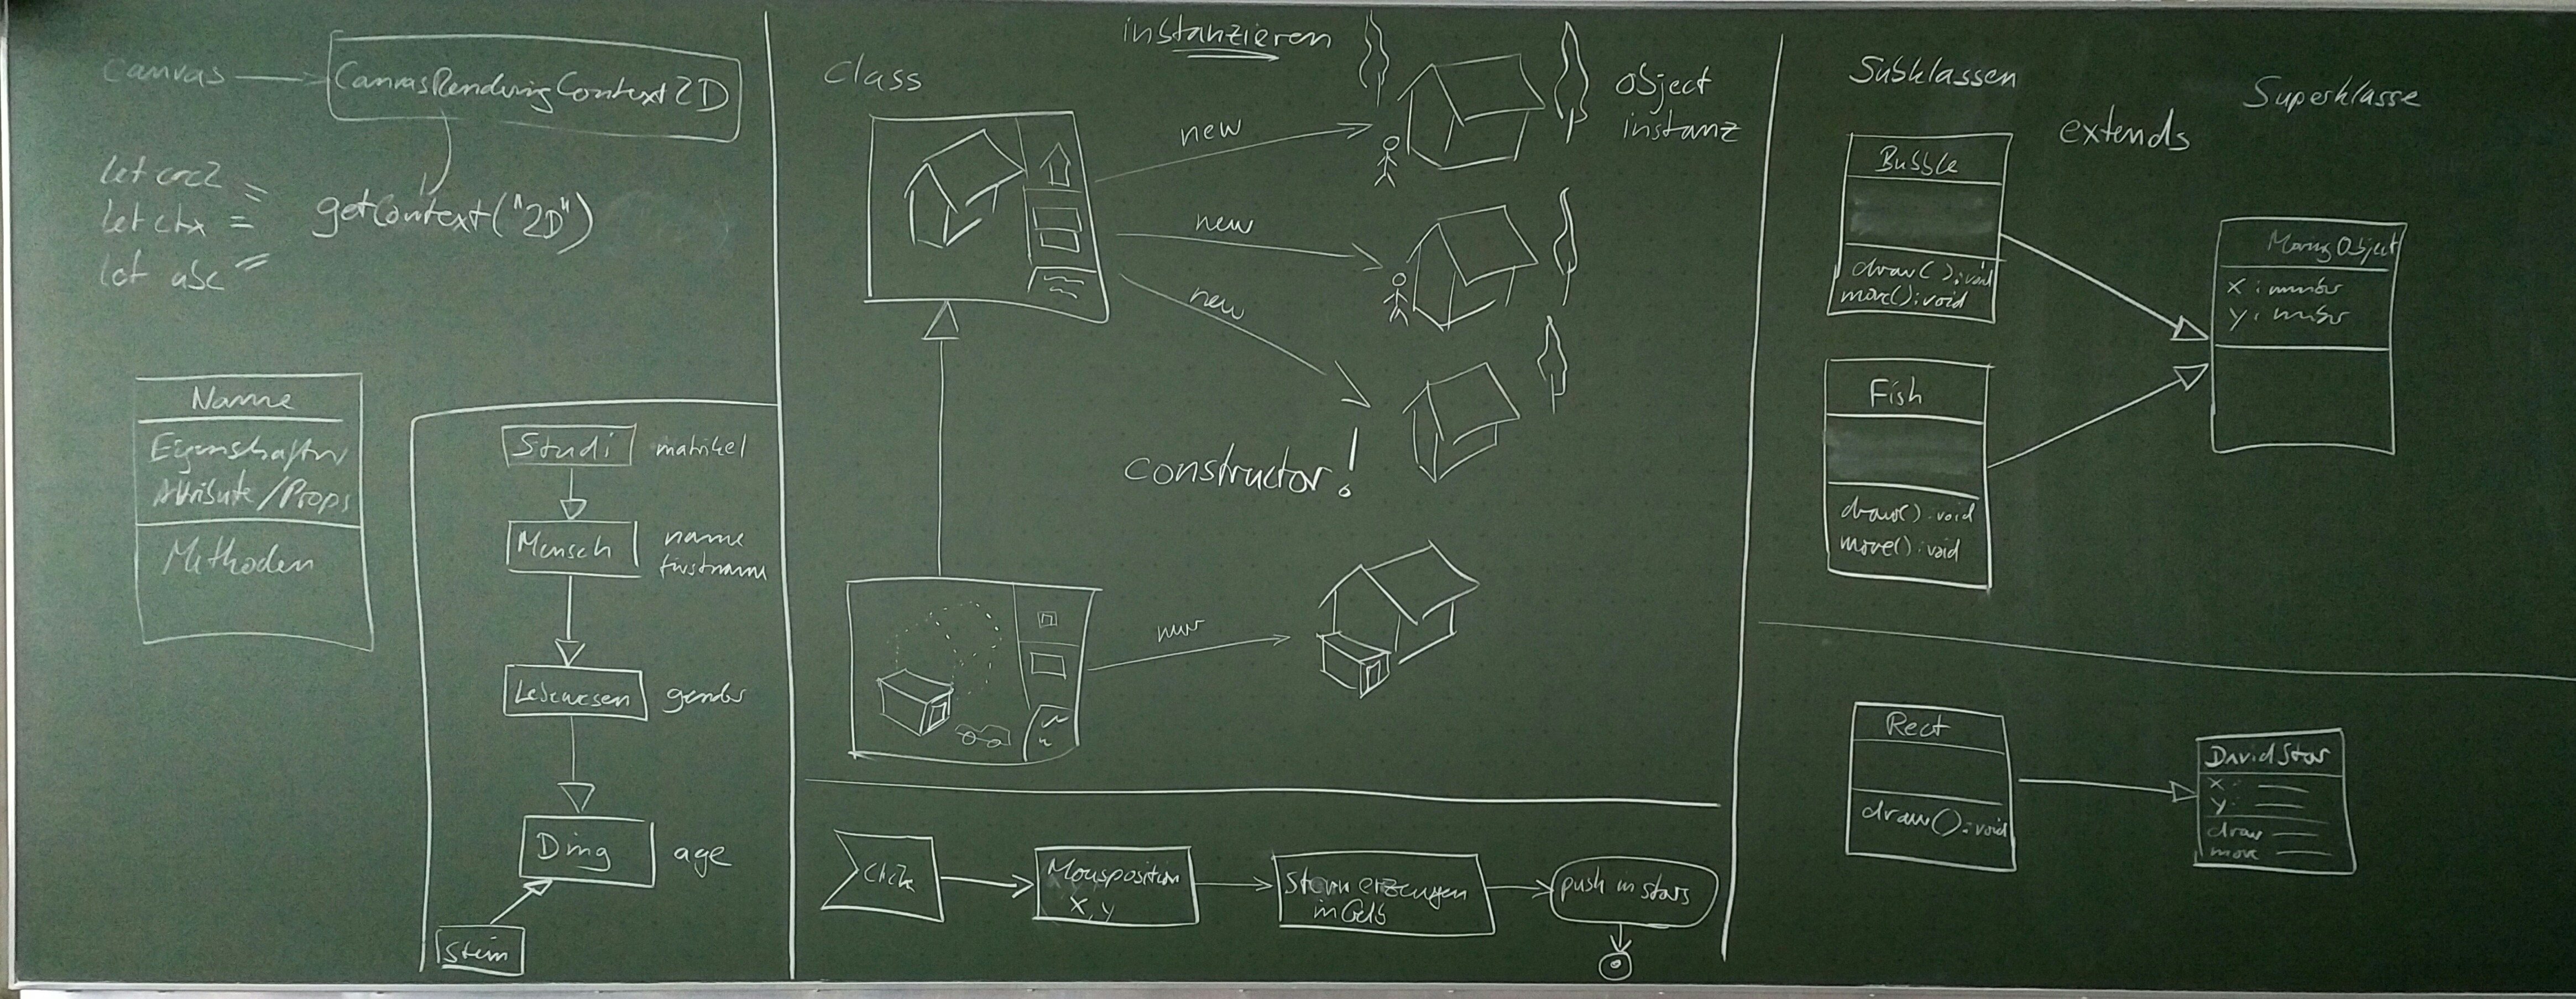 canvas
CanvasRenderingContext2D
let crc2 =
let ctx =
let abc =
getContext("2D")
Name
Eigenschaften
Attribute/Props
Methoden
Studi
matrikel
Mensch
name
firstname
Lebewesen
gender
Ding
age
Stein
Class
instanzieren
new
new
new
object
instanz
constructor!
new
Click
Mousposition
X, Y
Stern erzeugen
in Gelb
push in stars
Subklassen
extends
Superklasse
Bubble
draw():void
move():void
Fish
draw():void
move():void
MovingObject
x: number
y: number
Rect
draw():void
DavidStar
x:
y:
draw
move